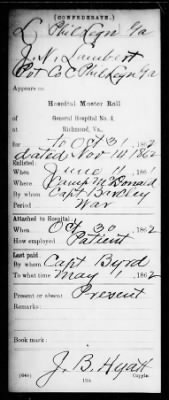 (CONFEDERATE.)
L Phil Legn Ga
J. N. Lambert
Pvt Co C Phil Legn Ga
Appears on
Hospital Muster Roll
of General Hospital No. 4,
at Richmond, Va.,
for To Oct 31, 1862
dated Nov 10 1862
Enlisted:
When June, 1861
Where Camp McDonald
By whom Capt Barclay
Period War
Attached to Hospital:
When Oct 30, 1862
How employed Patient
Last paid:
By whom Capt Byrd
To what time May 1, 1862
Present or absent Present
Remarks:
Book mark:
J. B. Hyatt
(646)
Copyist.